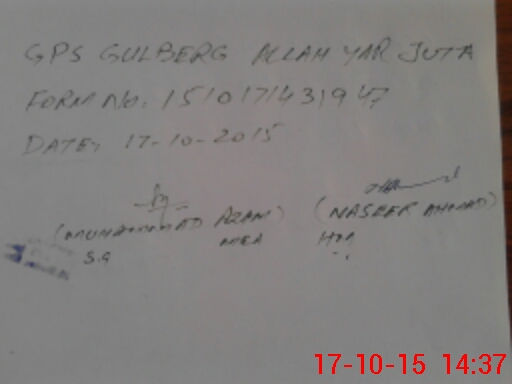 GPS GULBERG ALLAH YAR JUTA
FORM NO. 1510171431947
DATE: 17-10-2015
(MUHAMMAD AZAM) (NASEER AHMAD)
S.G MEA HM
17-10-15 14:37